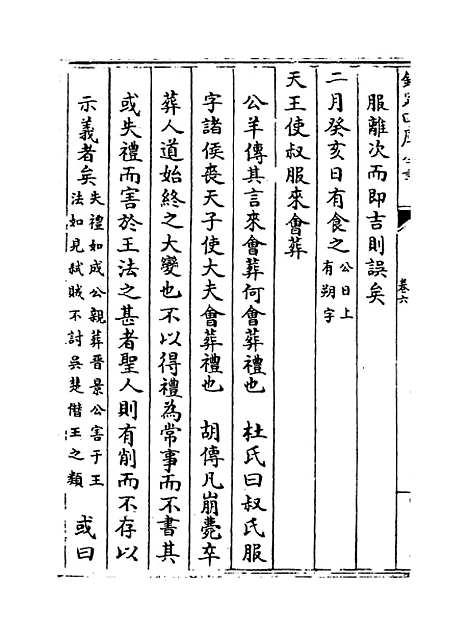 卷六
服離次而即吉則誤矣
二月癸亥日有食之公日上有朔字
天王使叔服來會葬
公羊傳其言來會葬何會葬禮也　杜氏曰叔氏服
字諸侯喪天子使大夫會葬禮也　胡傳凡崩薨卒
葬人道始終之大變也不以得禮為常事而不書其
或失禮而害於王法之甚者聖人則有削而不存以
示義者矣失禮如成公親葬晉景公害于王法如見弑賊不討吳楚僭王之類　或曰